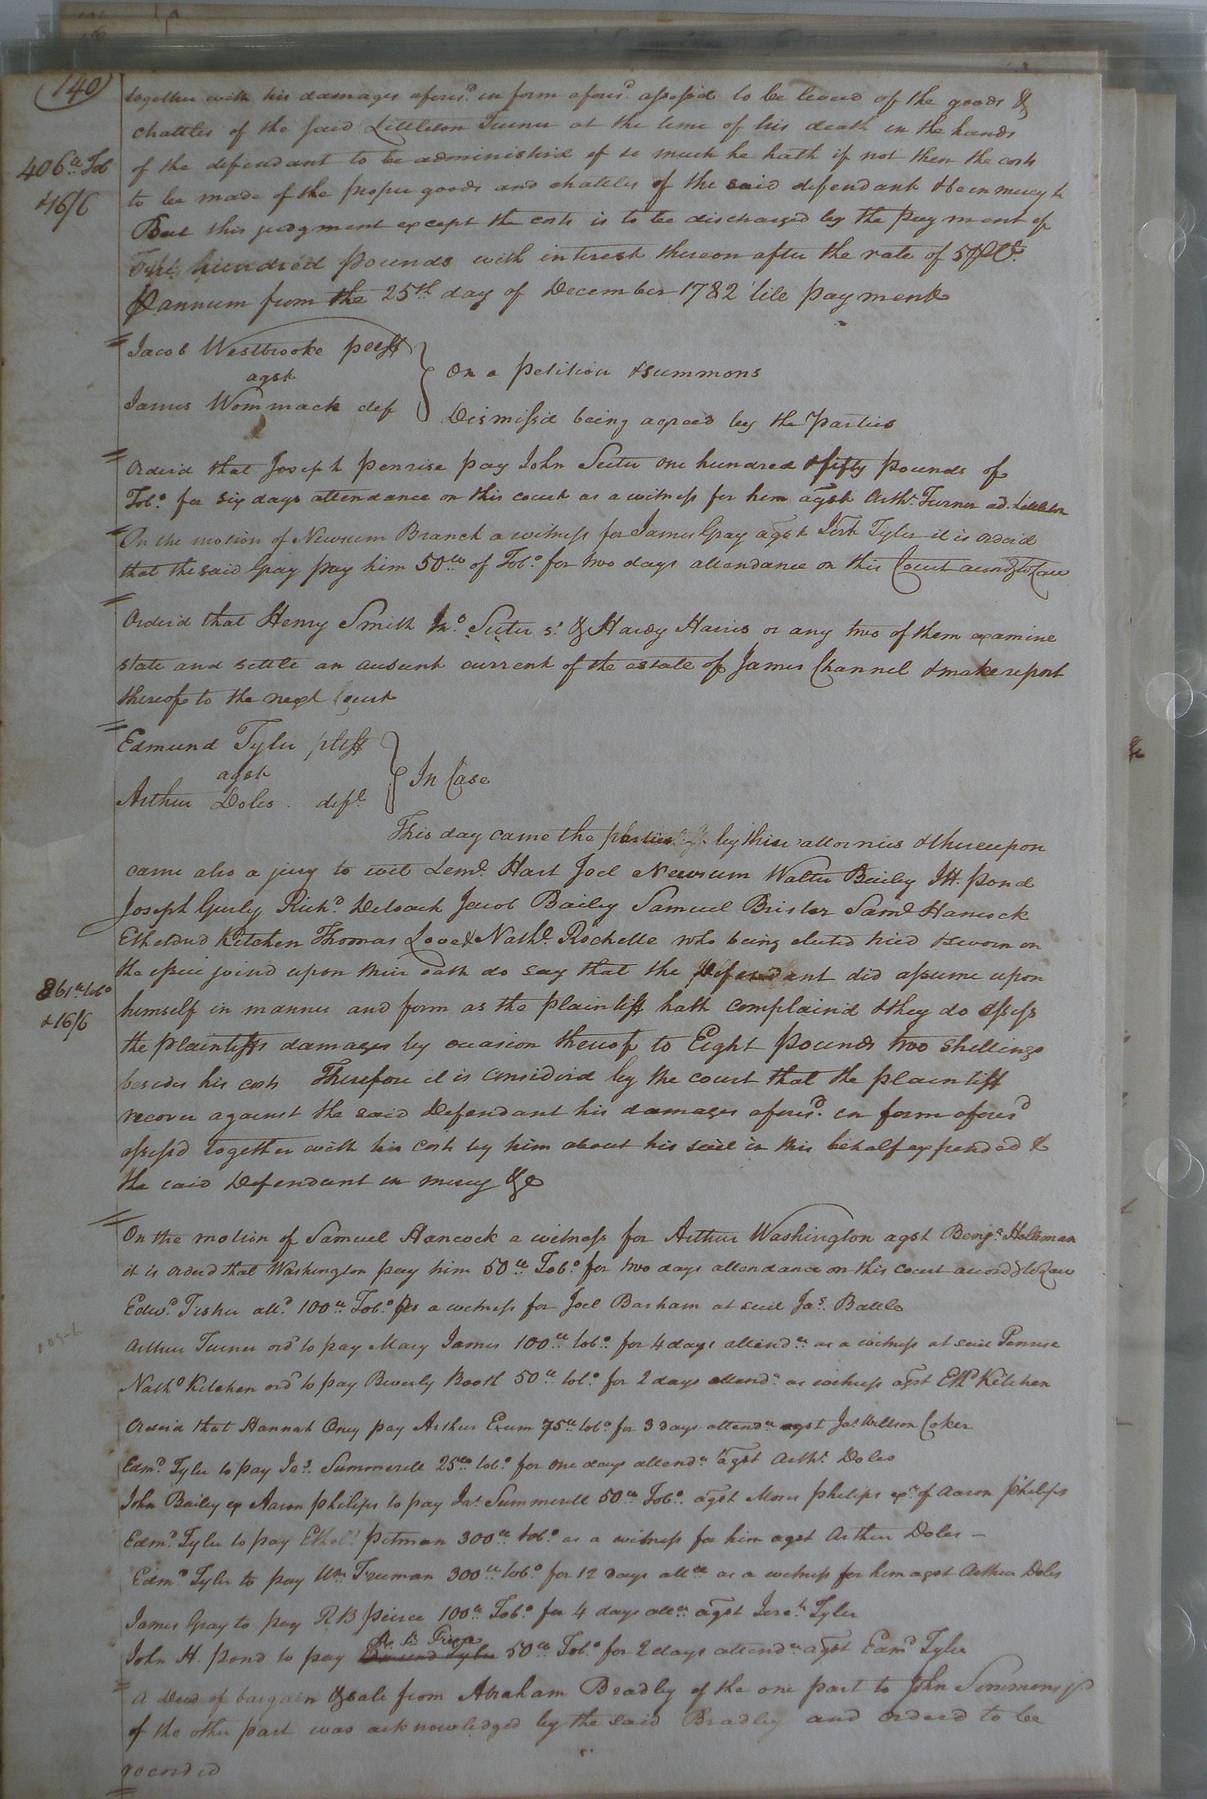 140
together with his damages afores.d in form afores.d assess'd to be levied of the goods &
chattles of the said Littleton Turner at the time of his death in the hands
406.lb Tob
&16/6
of the defendant to be administr'd if so much he hath if not then the costs
to be made of the proper goods and chattles of the said defendant & be in mercy &
But this judgment except the costs is to be discharged by the payment of
hundred pounds with interest thereon after the rate of 5
P annum from the 25th day of December 1782 till payment
Jacob Westbrooke pltff
agst
James Wommack def
On a petition & summons
Dismiss'd being agreed by the Parties
Order'd that Joseph Penrise pay John Suter one hundred & fifty pounds of
Tob.o for six days attendance on this court as a witness for him agst Arth.r Turner ad. Littleton
On the motion of Newsum Branch a witness for James Gray agst Tyler it is order'd
that the said Gray pay him 50.lb of Tob.o for two days attendance on this Court accord.g to Law
Order'd that Henry Smith Jn.o Suter s.r & Hardy Harris or any two of them examine
state and settle an account current of the estate of James Channel & make report
thereof to the next Court
Edmund Tyler pltff
agst
Arthur Doles def.t
In Case
This day came the parties by their attornies & thereupon
came also a jury to wit Lem.l Hart Joel Newsum Walter Bailey J H. Pond
Joseph Gurley Rich.d Deloach Jacob Bailey Samuel Brister Sam.l Hancock
Etheldred Kitchen Thomas Love & Nath.l Rochelle who being elected tried & sworn on
the issue joined upon their oath do say that the Defendant did assume upon
861.lb tob.o
&16/6
himself in manner and form as the plaintiff hath complain'd & they do assess
the plaintiffs damages by occasion thereof to Eight pounds two shillings
besides his costs Therefore it is consider'd by the court that the plaintiff
recover against the said Defendant his damages afores.d in form afores.d
assess'd together with his costs by him about his suit in this behalf expended &
the said Defendant in mercy &c
On the motion of Samuel Hancock a witness for Arthur Washington agst Benj.a Holleman
it is order'd that Washington pay him 50.lb Tob.o for two days attendance on this court accord.g to Law
Edw.d Fisher all.d 100.lb Tob.o as a witness for Joel Barham at suit Ja.s Battle
Arthur Turner ord.d to pay Mary James 100.lb tob.o for 4 days attend.ce as a witness at suit Penrise
Nath.l Kitchen ord.d to pay Beverly Booth 50.lb tob.o for 2 days attend.ce as witness agst Eth.d Kitchen
Order'd that Hannah Oney pay Arthur Exum 75.lb tob.o for 3 days attend.ce agst Jo.s Willson Coker
Edm.d Tyler to pay Ja.s Summerell 25.lb tob.o for one days attend.ce agst Arth.r Doles
John Bailey ex Aaron Philips to pay Ja.s Summerell 50.lb Tob.o agst Moses Philips ex.r of Aaron Philips
Edm.d Tyler to pay Ethel.d Pitman 300.lb tob.o as a witness for him agst Arthur Doles -
Edm.d Tyler to pay Wm Freeman 300.lb tob.o for 12 days att.ce as a witness for him agst Arthur Doles
James Gray to pay R B Peirce 100.lb Tob.o for 4 days att.ce agst Jere.h Tyler
John H. Pond to pay Edmund Tyler 50.lb Tob.o for 2 days attend.ce agst Edm.d Tyler
A Deed of bargain & sale from Abraham Bradley of the one part to John Simmons
of the other part was acknowledged by the said Bradley and order'd to be
recorded